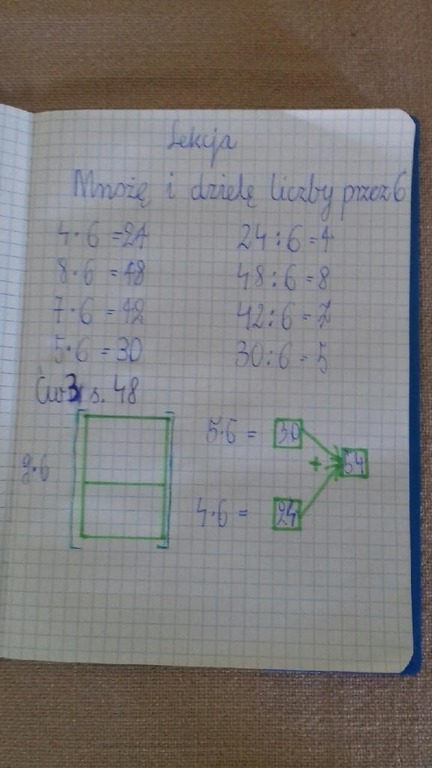 Lekcja
Mnożę i dzielę liczby przez 6
4·6=24 24:6=4
8·6=48 48:6=8
7·6=42 42:6=7
5·6=30 30:6=5
Ćw 3 s. 48
5·6= 30
9·6 + 54
4·6= 24